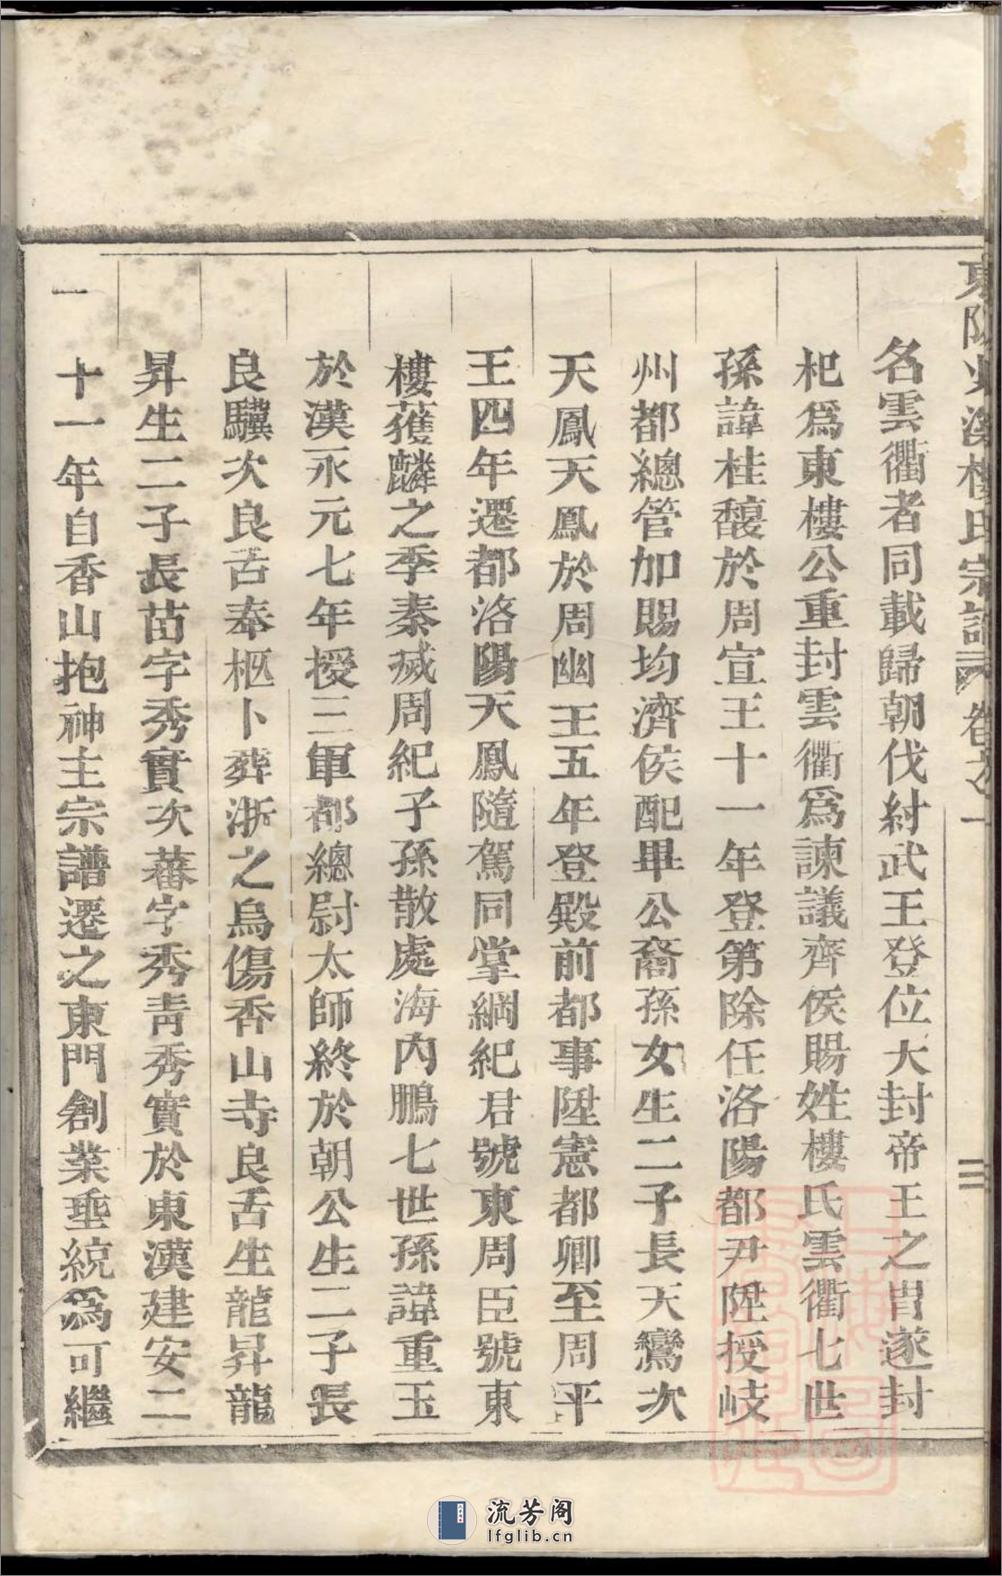 樓氏宗譜 卷之一 三
名雲衢者同載歸朝伐紂武王登位大封帝王之胄遂封
杞爲東樓公重封雲衢爲諫議齊侯賜姓樓氏雲衢七世
孫諱桂馥於周宣王十一年登第除任洛陽都尹陞授岐
州都總管加賜均濟侯配畢公裔孫女生二子長天鸞次
天鳳天鳳於周幽王五年登殿前都事陞憲都卿至周平
王四年遷都洛陽天鳳隨駕同掌綱紀君號東周臣號東
樓獲麟之季秦滅周紀子孫散處海內鵬七世孫諱重玉
於漢永元七年授三軍都總尉太師終於朝公生二子長
良驥次良舌奉柩卜葬浙之烏傷香山寺良舌生龍昇龍
昇生二子長苗字秀實次蕃字秀青秀實於東漢建安二
十一年自香山抱神主宗譜遷之東門創業垂統爲可繼
流芳阁
lfglib.cn